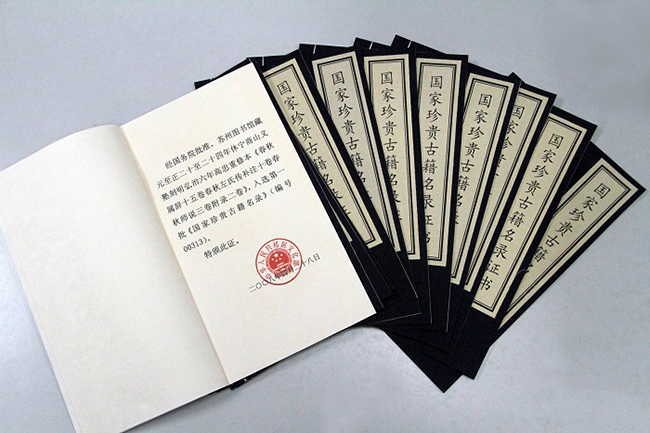 经国务院批准，苏州图书馆藏
元至正二十至二十四年休宁商山义
塾刻明弘治六年高忠重修本《春秋
属辞十五卷春秋左氏传补注十卷春
秋师说三卷附录二卷》，入选第一
批《国家珍贵古籍名录》（编号
00313）。
特颁此证。
中华人民共和国文化部
二〇〇八年四月二十八日
国家珍贵古籍名录证
国家珍贵古籍名录证
国家珍贵古籍名录证书
国家珍贵古籍名录证书
国家珍贵古籍名
国
国家珍贵古籍名录证书
国家珍贵古籍